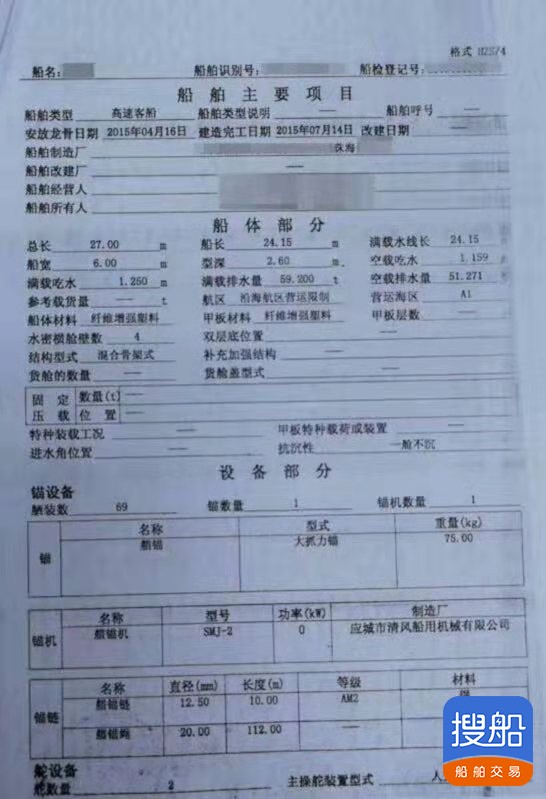 格式 HZS/4
船名: 船舶识别号: 船检登记号:
船舶主要项目
船舶类型 高速客船 船舶类型说明 — 船舶呼号 —
安放龙骨日期 2015年04月16日 建造完工日期 2015年07月14日 改建日期 —
船舶制造厂 珠海
船舶改建厂 —
船舶经营人
船舶所有人
船体部分
总长 27.00 m 船长 24.15 m 满载水线长 24.15 m
船宽 6.00 m 型深 2.60 m 空载吃水 1.159 m
满载吃水 1.250 m 满载排水量 59.200 t 空载排水量 51.271 t
参考载货量 — t 航区 沿海航区营运限制 营运海区 A1
船体材料 纤维增强塑料 甲板材料 纤维增强塑料 甲板层数 —
水密横舱壁数 4 双层底位置 —
结构型式 混合骨架式 补充加强结构 —
货舱的数量 — 货舱盖型式 —
固定压载 数量(t) —
位置 —
特种装载工况 — 甲板特种载荷或装置 —
进水角位置 — 抗沉性 一舱不沉
设备部分
锚设备
舾装数 69 锚数量 1 锚机数量 1
锚 名称 型式 重量(kg)
艏锚 大抓力锚 75.00
锚机 名称 型号 功率(kW) 制造厂
艏锚机 SMJ-2 0 应城市清风船用机械有限公司
锚链 名称 直径(mm) 长度(m) 等级 材料
艏锚链 12.50 10.00 AM2
艏锚绳 20.00 112.00 — —
舵设备
舵数量 2 主操舵装置型式 人
搜船
船舶交易